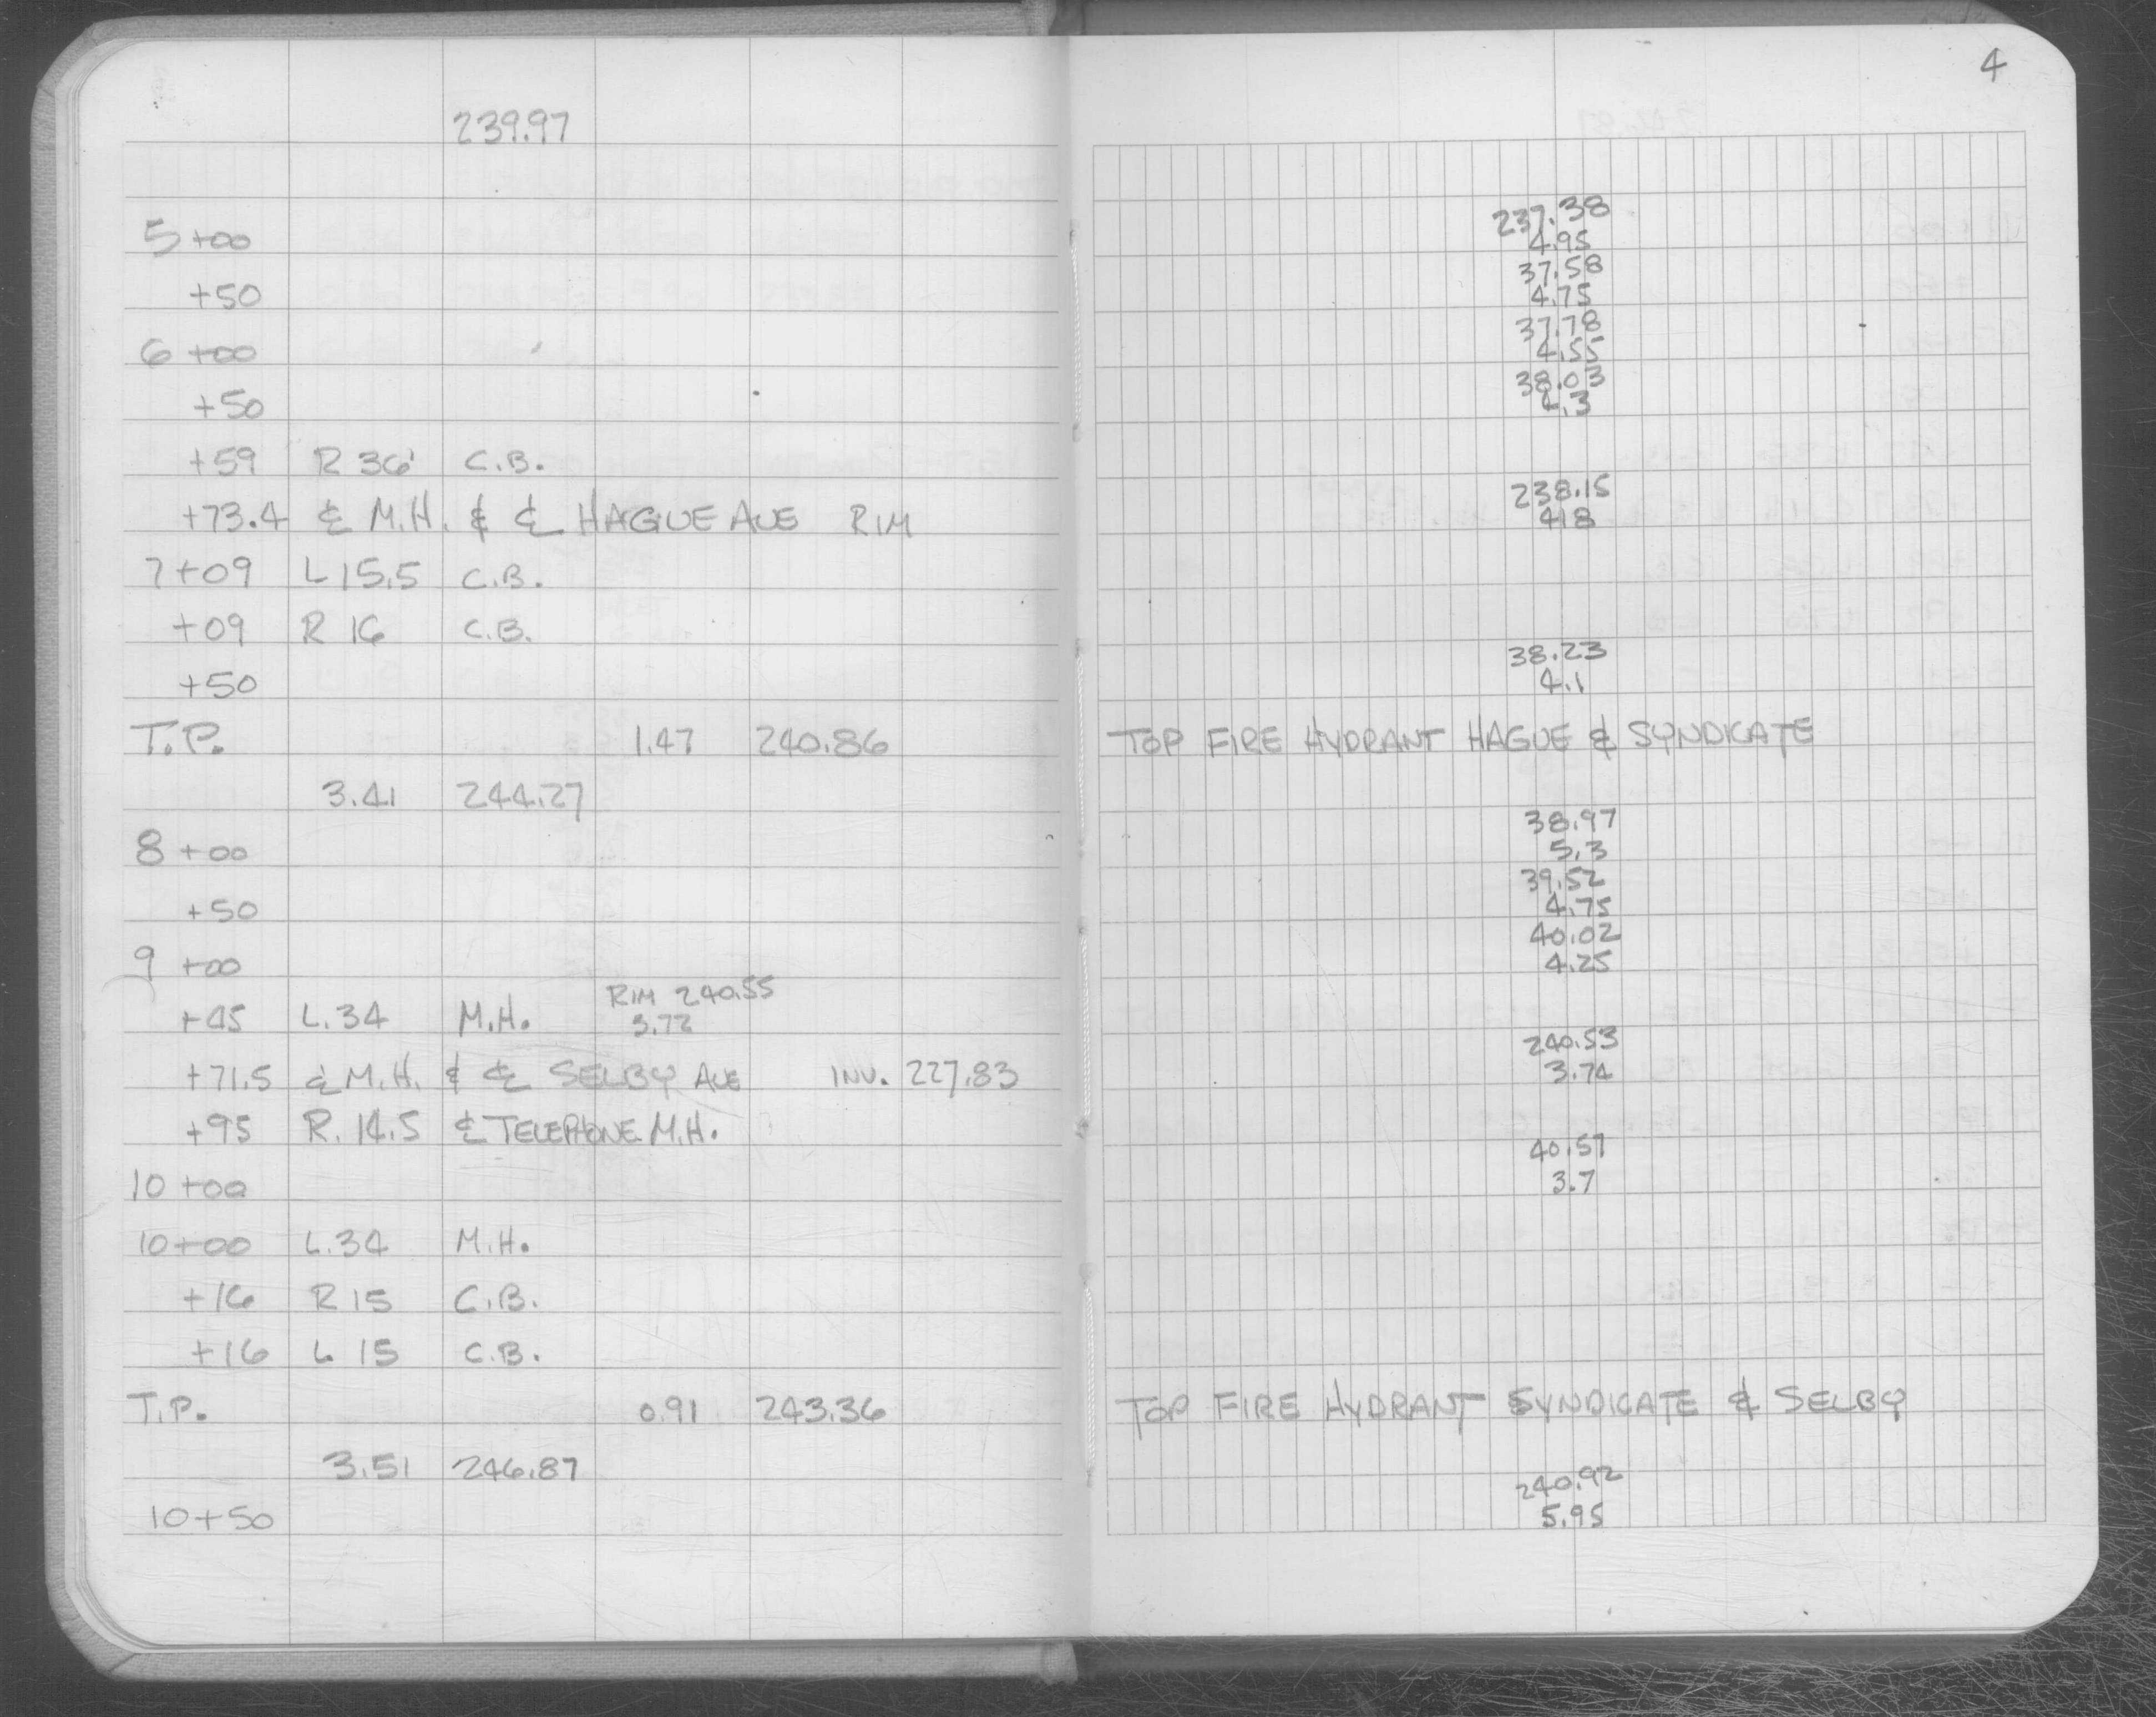 4
239.97
237.38
5+00 4.95
37.58
+50 4.75
37.78
6+00 4.55
38.03
+50 4.3
+59 R 36' C.B.
238.15
+73.4 ℄ M.H. & ℄ HAGUE AVE RIM 4.18
7+09 L 15.5 C.B.
+09 R 16 C.B.
38.23
+50 4.1
T.P. 1.47 240.86 TOP FIRE HYDRANT HAGUE & SYNDICATE
3.41 244.27
38.97
8+00 5.3
39.52
+50 4.75
40.02
9+00 4.25
RIM 240.55
+45 L.34 M.H. 3.72
240.53
+71.5 ℄ M.H. & ℄ SELBY AVE INV. 227.83 3.74
+95 R. 14.5 ℄ TELEPHONE M.H.
40.57
10+00 3.7
10+00 L.34 M.H.
+16 R 15 C.B.
+16 L 15 C.B.
T.P. 0.91 243.36 TOP FIRE HYDRANT SYNDICATE & SELBY
3.51 246.87
240.92
10+50 5.95